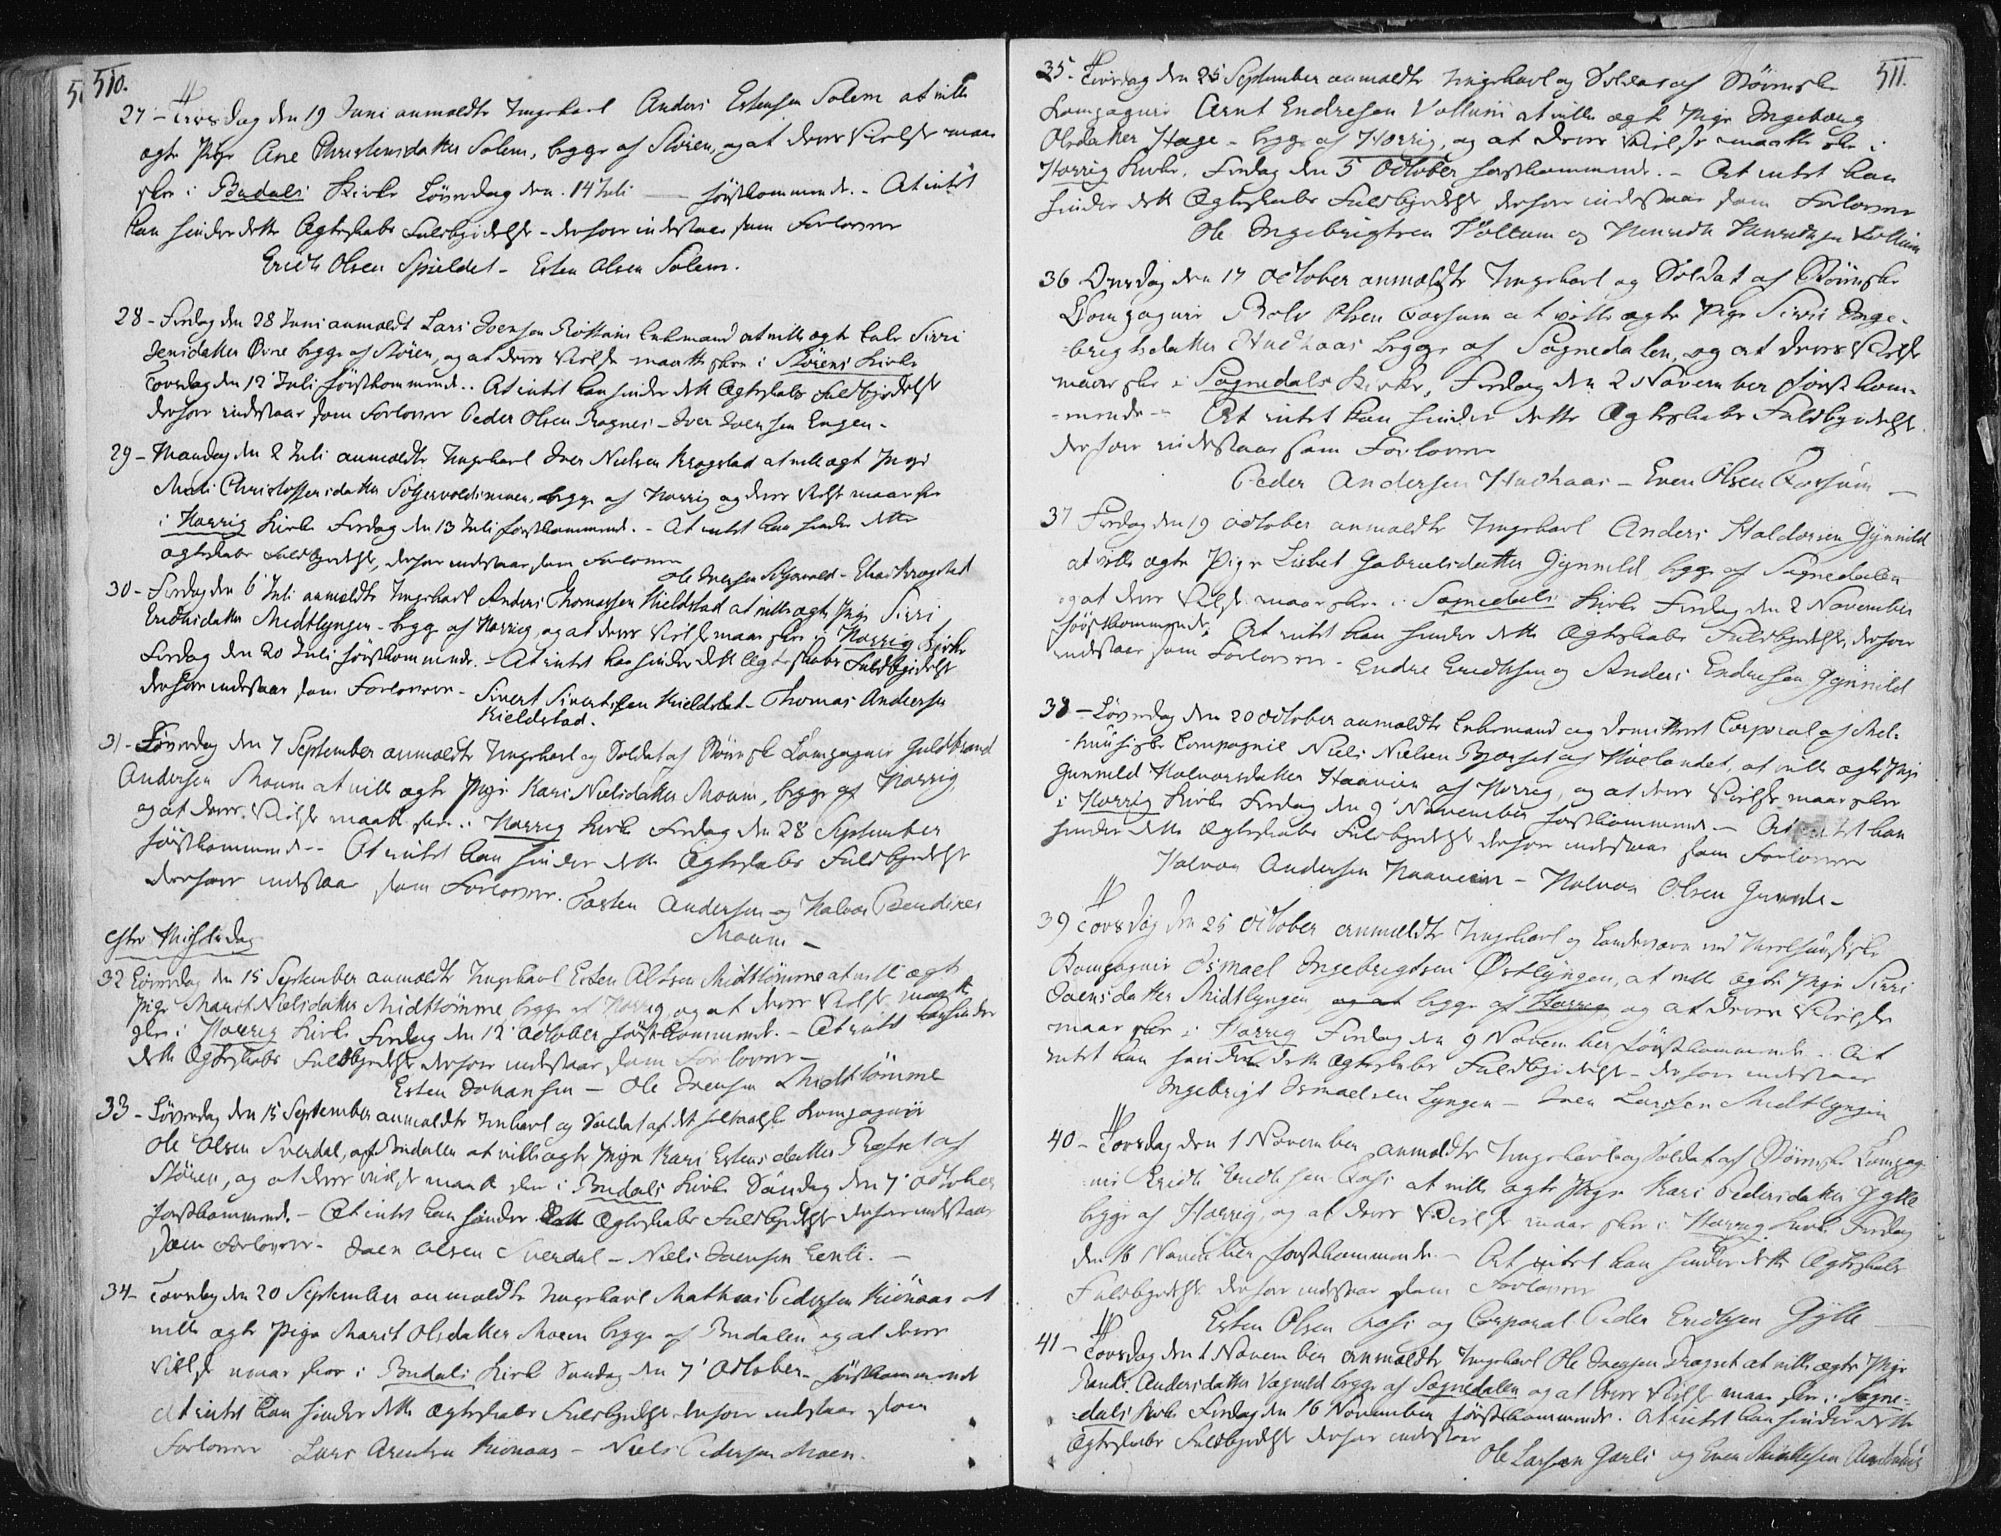 510.
27 - Tirsdag den 19 Juni anmældte Ungekarl Anders Estensen Solem at ville
ægte Pige Ane Christensdatter Solem, begge af Støren, og at deres Vielse maae
skee i Budals Kirke Løverdag den 14 Juli førstkommende. - At intet
kan hindre dette Ægteskabs Fuldbyrdelse - derfore indestaae som Forlovere
Erich Olsen Spieldet - Esten Olsen Solem.
28 - Fredag den 28 Juni anmeldt Lars Joensen Enkemand at ville ægte Enke Sirri
Jensdatter Øvre begge af Støren, og at deres Vielse maatte skee i Størens Kirke
Torsdag den 12 Juli førstkommende. At intet kan hindre dette Ægteskabs Fuldbyrdelse
derfore indestaar som Forlovere Peder Olsen Rognes - Iver Iversen Engen -
29 - Mandag den 2 Juli anmældte Ungekarl Iver Nielsen Krogstad at ville ægte Pige
Christophersdatter begge af Horrig og deres Vielse maa skee
i Horrig Kirke Fredag den 13 Juli førstkommend. - At intet kan hindre dette
ægteskabs Fuldbyrdelse, derfore indestaar som Forlovere
Ole Iversen - Krogstad
30 - Fredag den 6 Juli anmeldte Ungekarl Anders Thomassen Kieldstad at ville ægte Pige Sirri
Erichsdatter Midtlyngen - begge af Horrig, og at deres Vielse maae skee i Horrig Kirke
Fredag den 20 Juli førstkommende. - At intet kan hindre dette Ægteskabs Fuldbyrdelse
derfore indestaar som Forlovere - Sivert Sivertsen Kieldstad - Thomas Andersen
Kieldstad.
31 - Løverdag den 7 September anmældte Ungekarl og Soldat af Størenske Compagnie Guldbrand
Andersen Moum at ville ægte Pige Kari Nielsdatter Moum, begge af Horrig,
og at deres Vielse maatte skee i Horrig Kirke Fredag den 28 September
førstkommende - At intet kan hindre dette Ægteskabs Fuldbyrdelse
derfore indestaar som Forlovere. Andersen og Halvor
Moum -
efter Misseldag
32 Løverdag den 15 September anmældte Ungekarl Esten Midttømme at ville ægte
Pige Marit Nielsdatter Midttømme begge af Horrig og at deres Vielse maatte
skee i Horrig Kirke Fredag den 12 October førstkommend. - At intet kan hindre
dette Ægteskabs Fuldbyrdelse derfore indestaar som Forlovere -
Esten Johansen - Ole Joensen Midttømme
33 - Løverdag den 15 September anmældte Unkarl og Soldat af det Compagnie
Ole Olsen Sverdal, af Budalen at ville ægte Pige Kari Estensdatter af
Støren, og at deres vielse maatte skee i Budals Kirke Søndag den 7 October
førstkommend. - At intet kan hindre dette Ægteskabs Fuldbyrdelse derfore indestaar
som Forlovere - Joen Olsen Sverdal - Niels Joensen Eenli. -
34 - Torsdag den 20 September anmældte Ungekarl Mathias Pedersen Kiönaas at
ville ægte Pige Marit Olsdatter Moen begge af Budalen og at deres
Vielse maae skee i Budals Kirke Søndag den 7 October - førstkommend
At intet kan hindre dette Ægteskabs Fuldbyrdelse derfore indestaar som
Forlovere Lars Arentsen Kiönaas - Niels Pedersen Moen.
511.
35. Tirsdag den 25 September anmældte Ungekarl og Soldat af Størenske
Kompagnie Arnt Endresen Vollum at ville ægte Pige Ingeborg
Olsdatter Hage - begge af Horrig, og at deres Vielse maatte skee i
Horrig Kirke, Fredag den 5 October førstkommende. - At intet kan
hindre dette Ægteskabs Fuldbyrdelse derfore indestaar som Forlovere
Ole Ingebrigtsen Vollum og Henrich Henrichsen Vollum
36 Onsdag den 17 October anmældte Ungekarl og Soldat af Størenske
Kompagnie Rolv Olsen Forsum at ville ægte Pige Sirri Inge-
-brigtsdatter Hudkaas begge af Sognedalen, og at deres Vielse
maae skee i Sognedals Kirke, Fredag den 2 November førstkom-
-mende - At intet kan hindre dette Ægteskabs Fuldbyrdelse
derfore indestaar som Forlovere
Peder Andersen Hudkaas - Even Olsen Forsum -
37 Fredag den 19 October anmældte Ungekarl Anders Haldorsen Gynnild
at ville ægte Pige Liebet Gabrielsdatter Gynnild begge af Sognedalen
og at deres Vielse maae skee i Sognedals Kirke Fredag den 2 November
førstkommende. At intet kan hindre dette Ægteskabs Fuldbyrdelse, derfore
indestaar som Forlovere - Endre Erichsen og Anders Endresen Gynnild
38 - Løverdag den 20 October anmældte Enkemand og Corporal af Mel-
-huusiske Compagnie Niels Nielsen Bjørset af Høelandet, at ville ægte Pige
Gunnild Halvorsdatter Haavien af Horrig, og at deres Vielse maae skee
i Horrig Kirke Fredag den 9 November førstkommend - At intet kan
hindre dette Ægteskabs Fuldbyrdelse derfore indestaar som Forlovere
Halvor Andersen Haavien - Halvor Olsen -
39 Torsdag den 25 October anmældte Ungekarl og Landeværn ved Meelhuusiske
Kompagnie Ismael Ingebrigtsen Østlyngen, at ville ægte Pige Sirri
Joensdatter Midtlyngen, og at begge af Horrig og at deres Vielse
maae skee i Horrig Fredag den 9 November førstkommende - At
intet kan hindre dette Ægteskabs Fuldbyrdelse - derfore indestaar
Ingebrigt Ismaelsen Lyngen - Iver Larssen Midtlyngen
40 - Torsdag den 1 November anmældte Ungekarl og Soldat af Størenske Kompag-
-nie Erich Erichsen Foss at ville ægte Pige Kari Pedersdatter Gylle
begge af Horrig, og at deres Vielse maae skee i Horrig Kirke Fredag
den 16 November førstkommende. - At intet kan hindre dette Ægteskabs
Fuldbyrdelse derfore indestaar som Forlovere
Esten Olsen Foss og Corporal Peder Erichsen Gylle
41 - Torsdag den 1 November anmældte Ungekarl Ole Joensen Dragset at ville ægte Pige
Randi Andersdatter Vagnild begge af Sognedalen og at deres Vielse maae skee i Sogne-
-dals Kirke Fredag den 16 November førstkommende. At intet kan hindre dette
Ægteskabs Fuldbyrdelse derfore indestaar
Ole Larsen Garli og Even